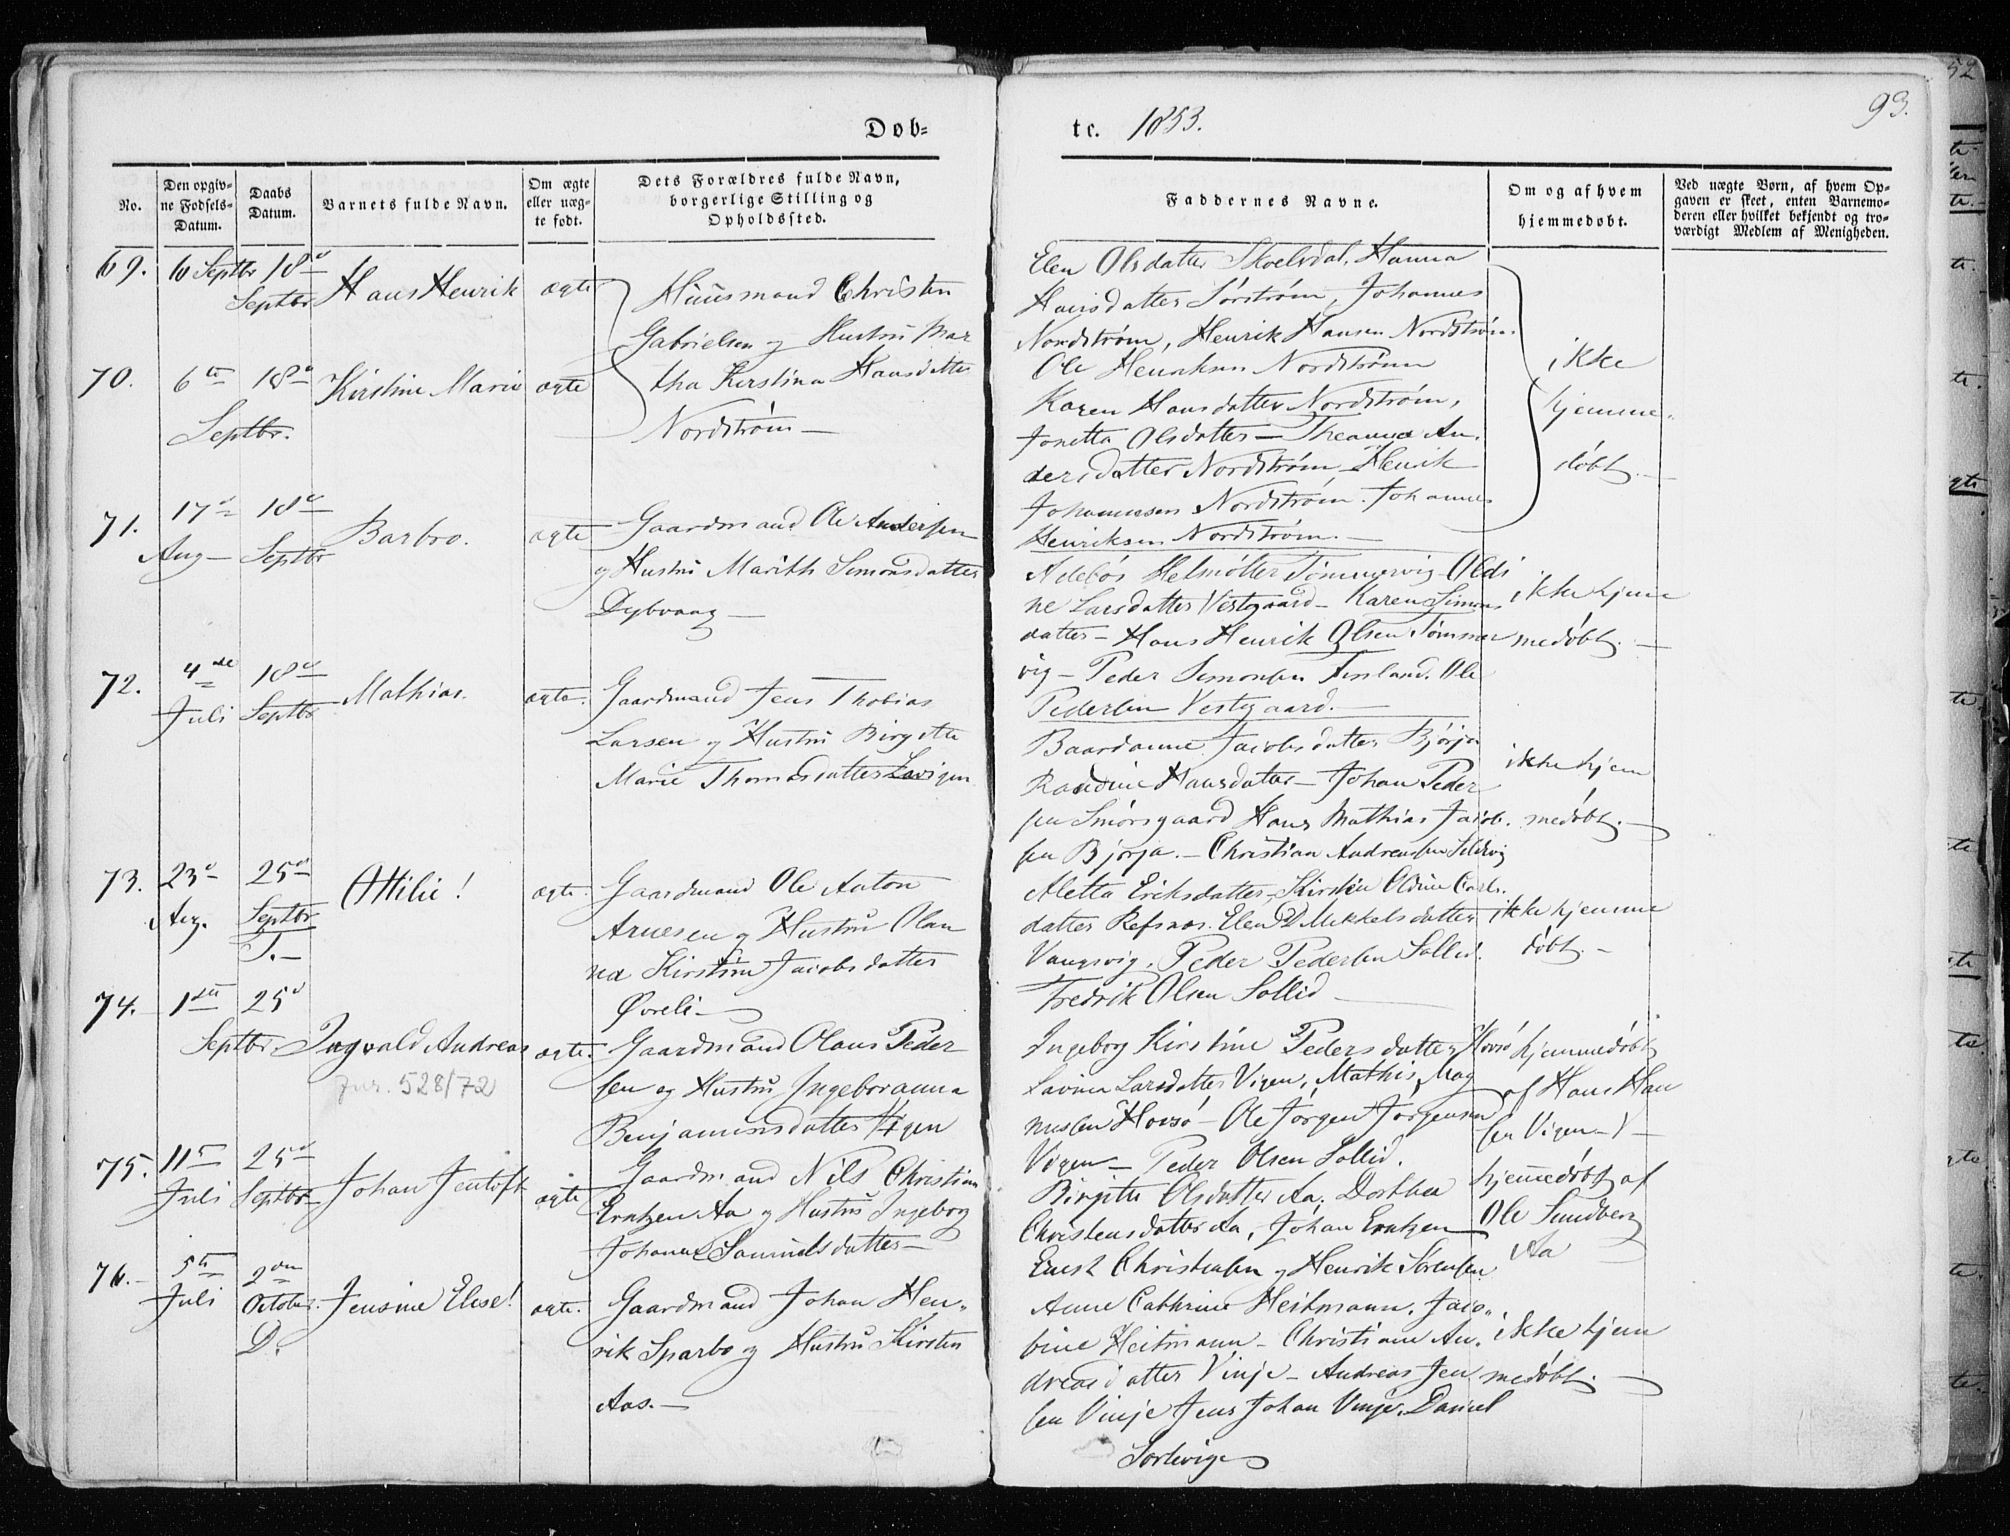 93.
Døb-
te. 1853.
No.
Den opgiv-
ne Fødsels-
Datum.
Daabs
Datum.
Barnets fulde Navn.
Om ægte
eller uæg-
te født.
Dets Forældres fulde Navn,
borgerlige Stilling og
Opholdssted.
Faddernes Navne.
Om og af hvem
hjemmedøbt.
Ved uægte Børn, af hvem Op-
gaven er skeet, enten Barnemo-
deren eller hvilket bekjendt og tro-
værdigt Medlem af Menigheden.
69.
6 Septbr
18
Septbr
Hans Henrik
ægte
Huusmand Christen
Gabrielsen og Hustru Mar
tha Kerstina Hansdatter
Nordstrøm —
Elen Olsdatter Hanna
Hansdatter Sørstrøm, Johannes
Nordstrøm, Henrik Hansen Nordstrøm
Ole Henriksen Nordstrøm
ikke
hjemme-
døbt. —
70.
6te
Septbr.
18
Kirstine Marie
ægte
Karen Hansdatter Nordstrøm,
Jonetta Olsdatter — Theanna An-
dersdatter Nordstrøm, Henrik
Johannesen Nordstrøm. Johannes
Henriksen Nordstrøm. —
71.
17
Aug —
18
Septbr
Barbro.
ægte
Gaardmand Ole Andersen
og Hustru Marith Simonsdatter
Dybvaag —
Tømmervig — Oldi
ne Larsdatter Vestgaard — Karen Simons
datter — Hans Henrik Olsen Tømmer
vig — Peder Simonsen Finland. Ole
Pedersen Vestgaard. —
ikke hjem
medøbt. —
72.
4de
Juli
18
Septbr
Mathias.
ægte.
Gaardmand Jens Thobias
Larsen og Hustru Birgitte
Marie Thomasdatter Lavigen
Baardanne Jacobsdatter Bjørja
Randine Hansdatter — Johan Peder
sen Smørsgaard Hans Mathias Jacob-
sen Bjørja. — Christian Andreassen
ikke hjem
medøbt. —
73.
23
Aug.
25
Septbr
T. —
Ottilie!
ægte.
Gaardmand Ole Anton
Arnesen og Hustru Olan
na Kirstine Jacobsdatter
Øreli —
Aletta Eriksdatter, Kirsten Oldine Carls-
datter Refsnæs. Elen D Mikkelsdatter
Vangsvig. Peder Pedersen Sollid.
Fredrik Olsen Sollid —
ikke hjemme
døbt. —
74.
1ste
Septbr.
25
Ingvald Andreas
jnr. 528/72
ægte.
Gaardmand Olaus Peder
sen og Hustru Ingeboranna
Benjaminsdatter Vigen
Ingeborg Kirstine Pedersdatter Hovsø
Lavina Larsdatter Vigen, Mathis Mag
nussen Hovsø — Ole Jørgen Jørgensen
Vigen — Peder Olsen Sollid.
hjemmedøbt
af Hans Han
sen Vigen —
75.
11
Juli
25
Septbr
Johan Jentoft
ægte
Gaardmand Nils Christian
Erntzen Aa og Hustru Ingeborg
Johanna Samuelsdatter —
Birgitte Olsdatter Aa. Dorthea
Christensdatter Aa, Johan Erntzen
Ernst Christensen og Henrik Sørensen
hjemmedøbt af
Ole Sundberg
Aa
76. —
5te
Juli
2den
October.
D.
Jensine Elise!
ægte.
Gaardmand Johan Hen-
rik Sparbo og Hustru Kirsten
Aas. —
Anne Cathrine Heitmann. Jaco-
bine Heitmann — Christiane An-
dreasdatter Vinje — Andreas Jen
sen Vinje Jens Johan Vinje. Daniel
Sørlevigen
ikke hjem
medøbt. —